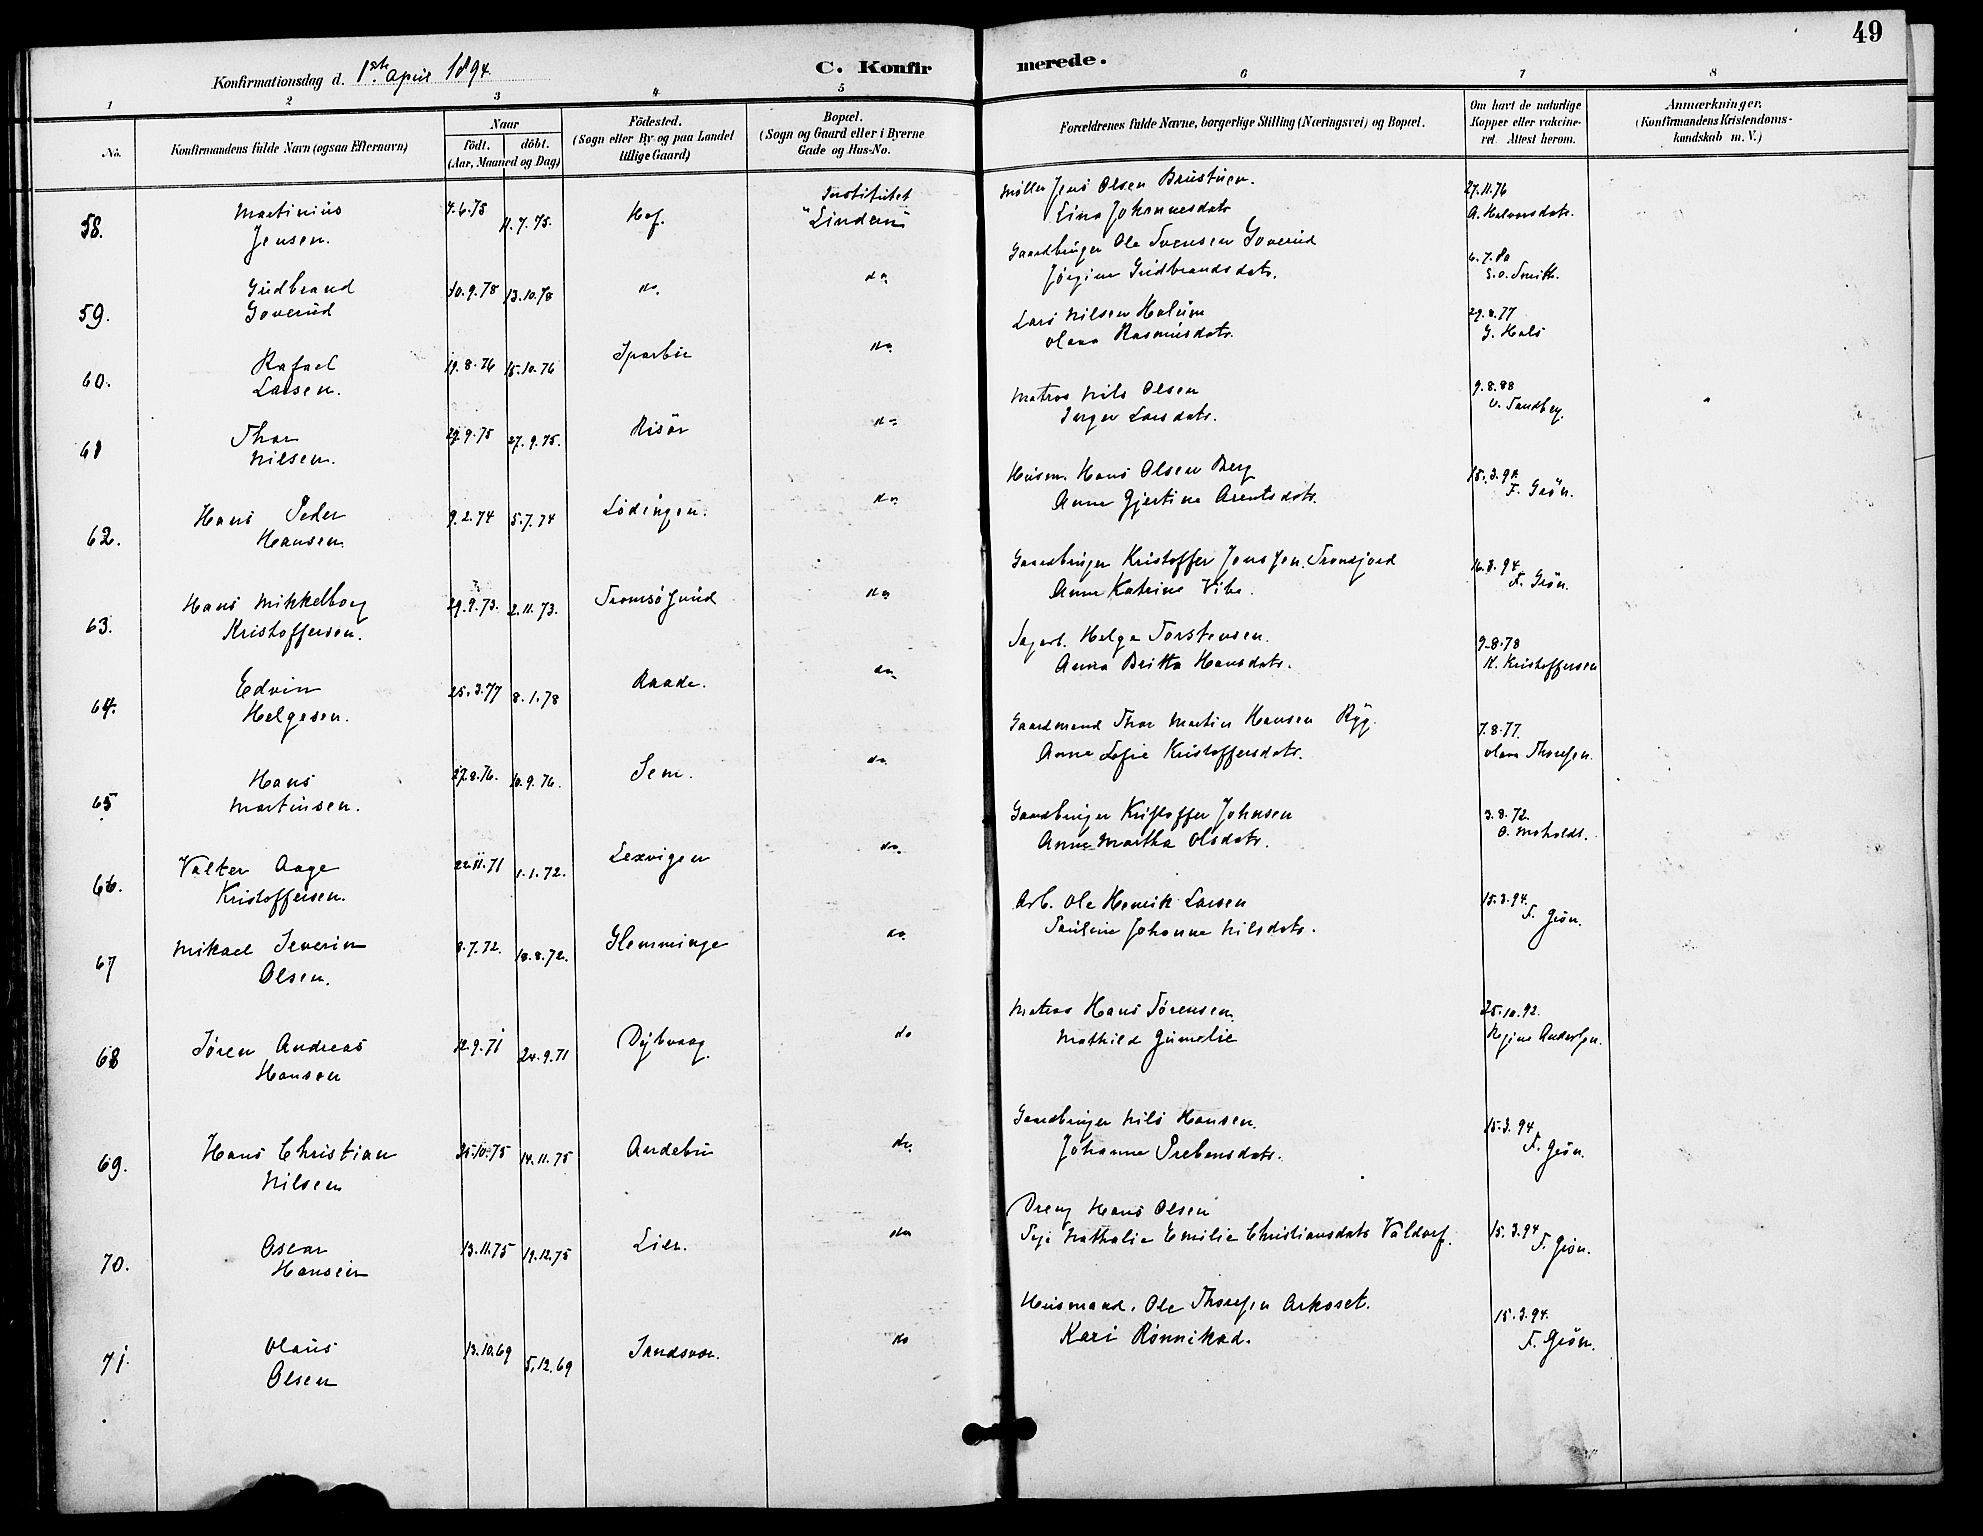 49
Konfirmationsdag d. 1ste April 1894.
C. Konfirmerede.
1 2 3 4 5 6 7 8
No.
Konfirmandens fulde Navn (ogsaa Efternavn)
Naar
født. døbt.
(Aar, Maaned og Dag)
Fødested.
(Sogn eller By og paa Landet
tillige Gaard)
Bopæl.
(Sogn og Gaard eller i Byerne
Gade og Hus-No.
Forældrenes fulde Navne, borgerlige Stilling (Næringsvei) og Bopæl.
Om havt de naturlige
Kopper eller vakcine-
ret Attest herom.
Anmærkninger.
(Konfirmandens Kristendoms-
kundskab m. V.)
58. Martinius
Jensen.
7.6.75 11.7.75. Hof.
Institutet
"Lindern"
Møller Jens Olsen Brustuen.
Lina Johannesdatr
27.11.76
A. Halvorsdatr.
59. Gudbrand
Goverud
10.9.78 13.10.78 do. do.
Gaardbruger Ole Svensen Goverud
Jørgine Gudbrandsdatr.
6.7.80
S.O. Smith.
60. Rafael
Larsen.
19.8.76 15.10.76 Sparbu do.
Lars Nilsen Halum
Olava Rasmusdatr.
29.8.77
G. Hals
61 Thor
Nilsen.
29.9.75 27.9.75. Risør do.
Matros Nils Olsen
Inger Larsdatr.
9.8.88
O. Sandberg.
62. Hans Peder
Hansen.
9.2.74 5.7.74 Lødingen. do.
Husm. Hans Olsen Berg
Anne Gjertine Arentsdatr.
15.3.94
F. Grön.
63. Hans Mikkelborg
Kristoffersen.
29.9.73. 2.11.73. Tromsøsund do.
Gaardbruger Kristoffer Jenssen. Tronsjord
Anne Katrine Vibe.
16.3.94.
F. Grön.
64. Edvin
Helgesen.
25.3.77 8.1.78 Raade. do.
Sagarb. Helge Torstensen.
Anna Britta Hansdatr.
9.8.78
K. Kristoffersen
65 Hans
Martinsen.
27.8.76. 10.9.76. Sem. do.
Gaardmand Thor Martin Hansen Ryg.
Anne Sofie Kristoffersdatr.
7.8.77.
Olava Thoresen.
66. Valter Aage
Kristoffersen.
22.11.71 1.1.72. Lexvigen do.
Gaardbruger Kristoffer Johnsen
Anne Martha Olsdatr.
3.8.72.
O. Moholdt.
67 Mikael Severin
Olsen.
8.7.72. 18.8.72. Glemminge do.
Arb. Ole Henrik Larsen
Pauline Johanne Nilsdatr.
15.3.94.
F. Grön.
68 Søren Andreas
Hansen
12.9.71 24.9.71 Dybvaag. do
Matros Hans Sørensen.
Mathild Gumelie
25.10.92.
Regine Andersen.
69. Hans Christian
Nilsen
25.10.75 14.11.75 Andebu do.
Gaardbruger Nils Hansen.
Johanne Prebensdatr.
15.3.94
F. Grön.
70. Oscar
Hansen
13.11.75 19.12.75 Lier. do
Dreng Hans Olsen
Pige Nathalie Emilie Christiansdatr Valdorf.
15.3.94
F. Grön.
71. Olaus
Olsen
13.10.69 5.12.69 Sandsvær. do
Husmand. Ole Thoresen Arkoset.
Kari Rønnikad.
15.3.94.
F. Grön.